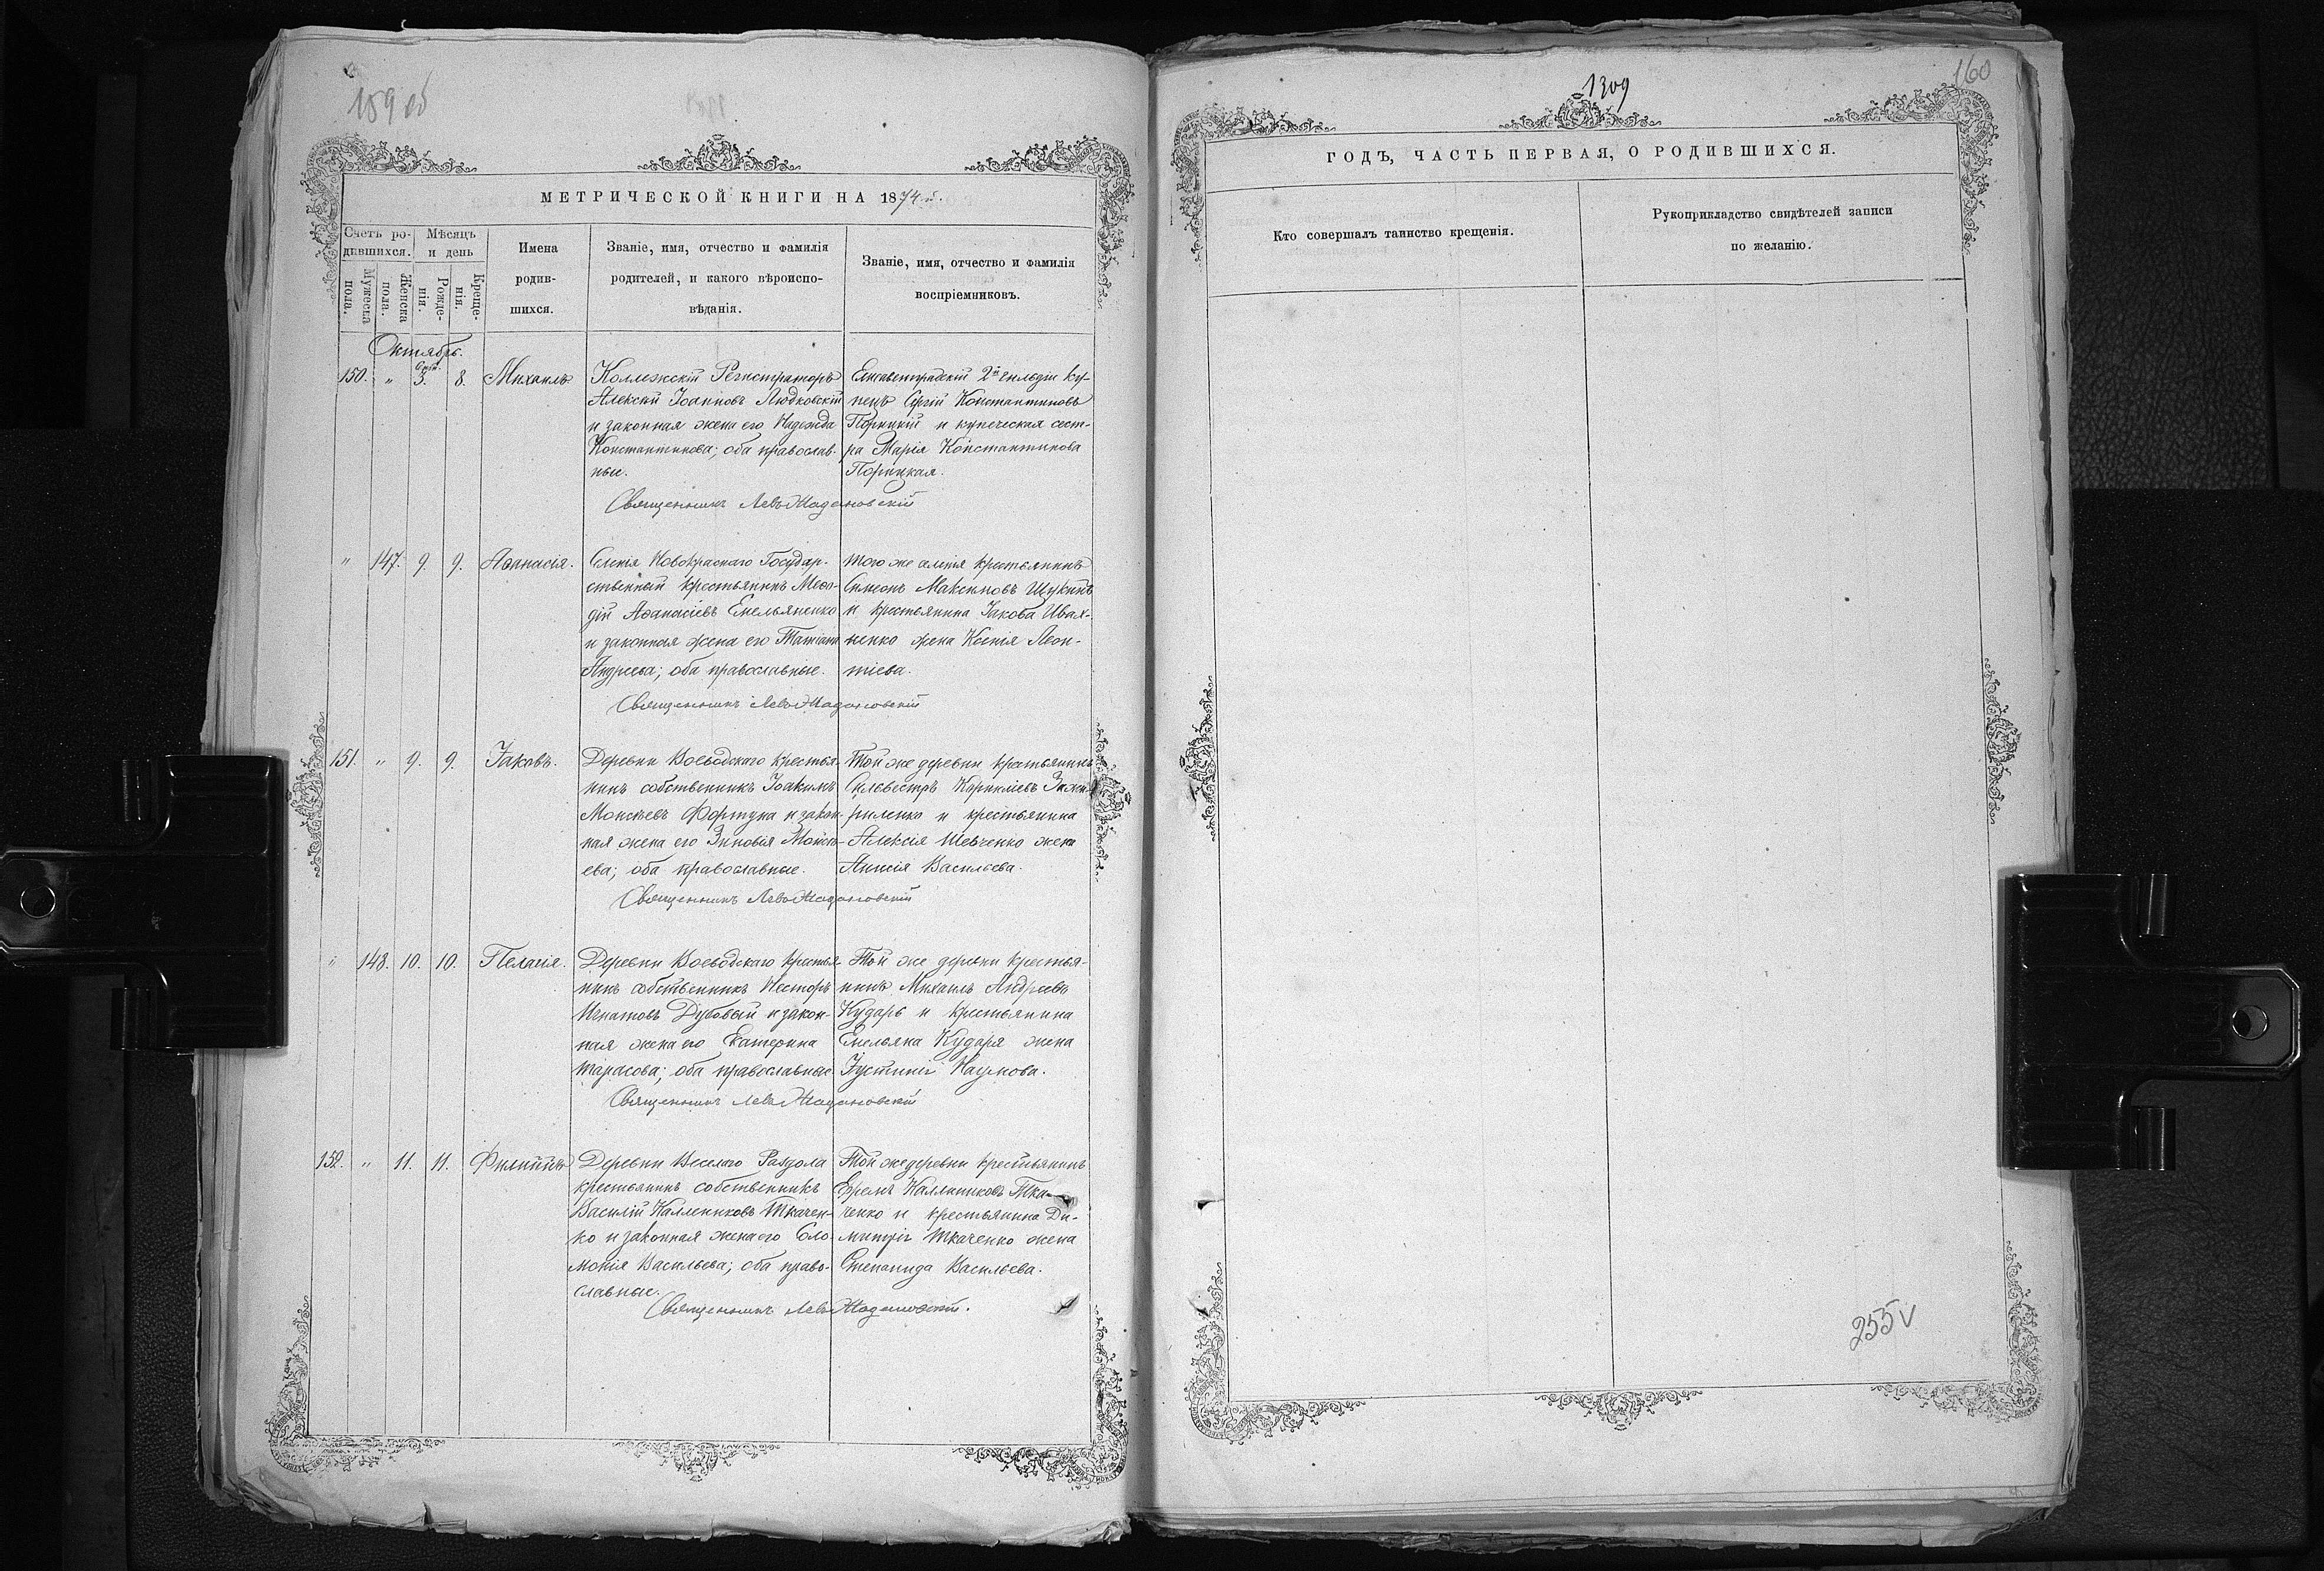 159 об
МЕТРИЧЕСКОЙ КНИГИ НА 1874й.
Счетъ ро-
дившихся.
Мѣсяцъ
и день
Мужеска
пола.
Женска
пола.
Рожде-
нія.
Креще-
нія.
Имена
родив-
шихся.
Званіе, имя, отчество и фамилія
родителей, и какого вѣроиспо-
вѣданія.
Званіе, имя, отчество и фамилія
воспріемниковъ.
Октябрь.
150. " 3. 8. Михаилъ
Коллежскій Регистраторъ
Алексѣй Іоанновъ Людковскій
и законная жена его Надежда
Константинова; оба православ-
ные.
Елисаветградскій 2й гильдіи ку-
пецъ Сергій Константиновъ
Порицкій и купеческая сест-
ра Марія Константинова
Порицкая.
Священникъ Левъ
" 147. 9. 9. Аѳанасія.
Селенія Новокраснаго Государ-
ственный крестьянинъ Меѳо-
дій Аѳанасіевъ Емельяненко
и законная жена его Татіана
Андреева; оба православные.
того же селенія крестьянинъ
Симеонъ Максимовъ Щукинъ
и крестьянина Іакова Ивах-
ненко жена Ксенія Леон-
тіева.
Священникъ Левъ
151. " 9. 9. Іаковъ.
Деревни Воеводскаго крестья-
нинъ собственникъ Іоакимъ
Моисѣевъ Фортуна и закон-
ная жена его Зиновія Моисѣ-
ева; оба православные.
Той же деревни крестьянинъ
Сильвестръ Корниліевъ
и крестьянина
Алексія Шевченко жена
Анисія Васильева.
Священникъ Левъ
" 148. 10. 10. Пелагія.
Деревни Воеводскаго крестья-
нинъ собственникъ Несторъ
Игнатовъ Дубовый и закон-
ная жена его Екатерина
Тарасова; оба православные.
Той же деревни крестья-
нинъ Михаилъ Андреевъ
Кударь и крестьянина
Емельяна Кударя жена
Іустинія Наумова.
Священникъ Левъ
152. " 11. 11. Филиппъ
Деревни Веселаго Раздола
крестьянинъ собственникъ
Василій Каллениковъ Ткачен-
ко и законная жена его Соло-
монія Васильева; оба право-
славные.
Той же деревни крестьянинъ
Ефремъ Каллиниковъ Тка-
ченко и крестьянина Ди-
митрія Ткаченко жена
Степанида Васильева.
Священникъ Левъ
1309
160
ГОДЪ, ЧАСТЬ ПЕРВАЯ, О РОДИВШИХСЯ.
Кто совершалъ таинство крещенія.
Рукоприкладство свидѣтелей записи
по желанію.
255 V